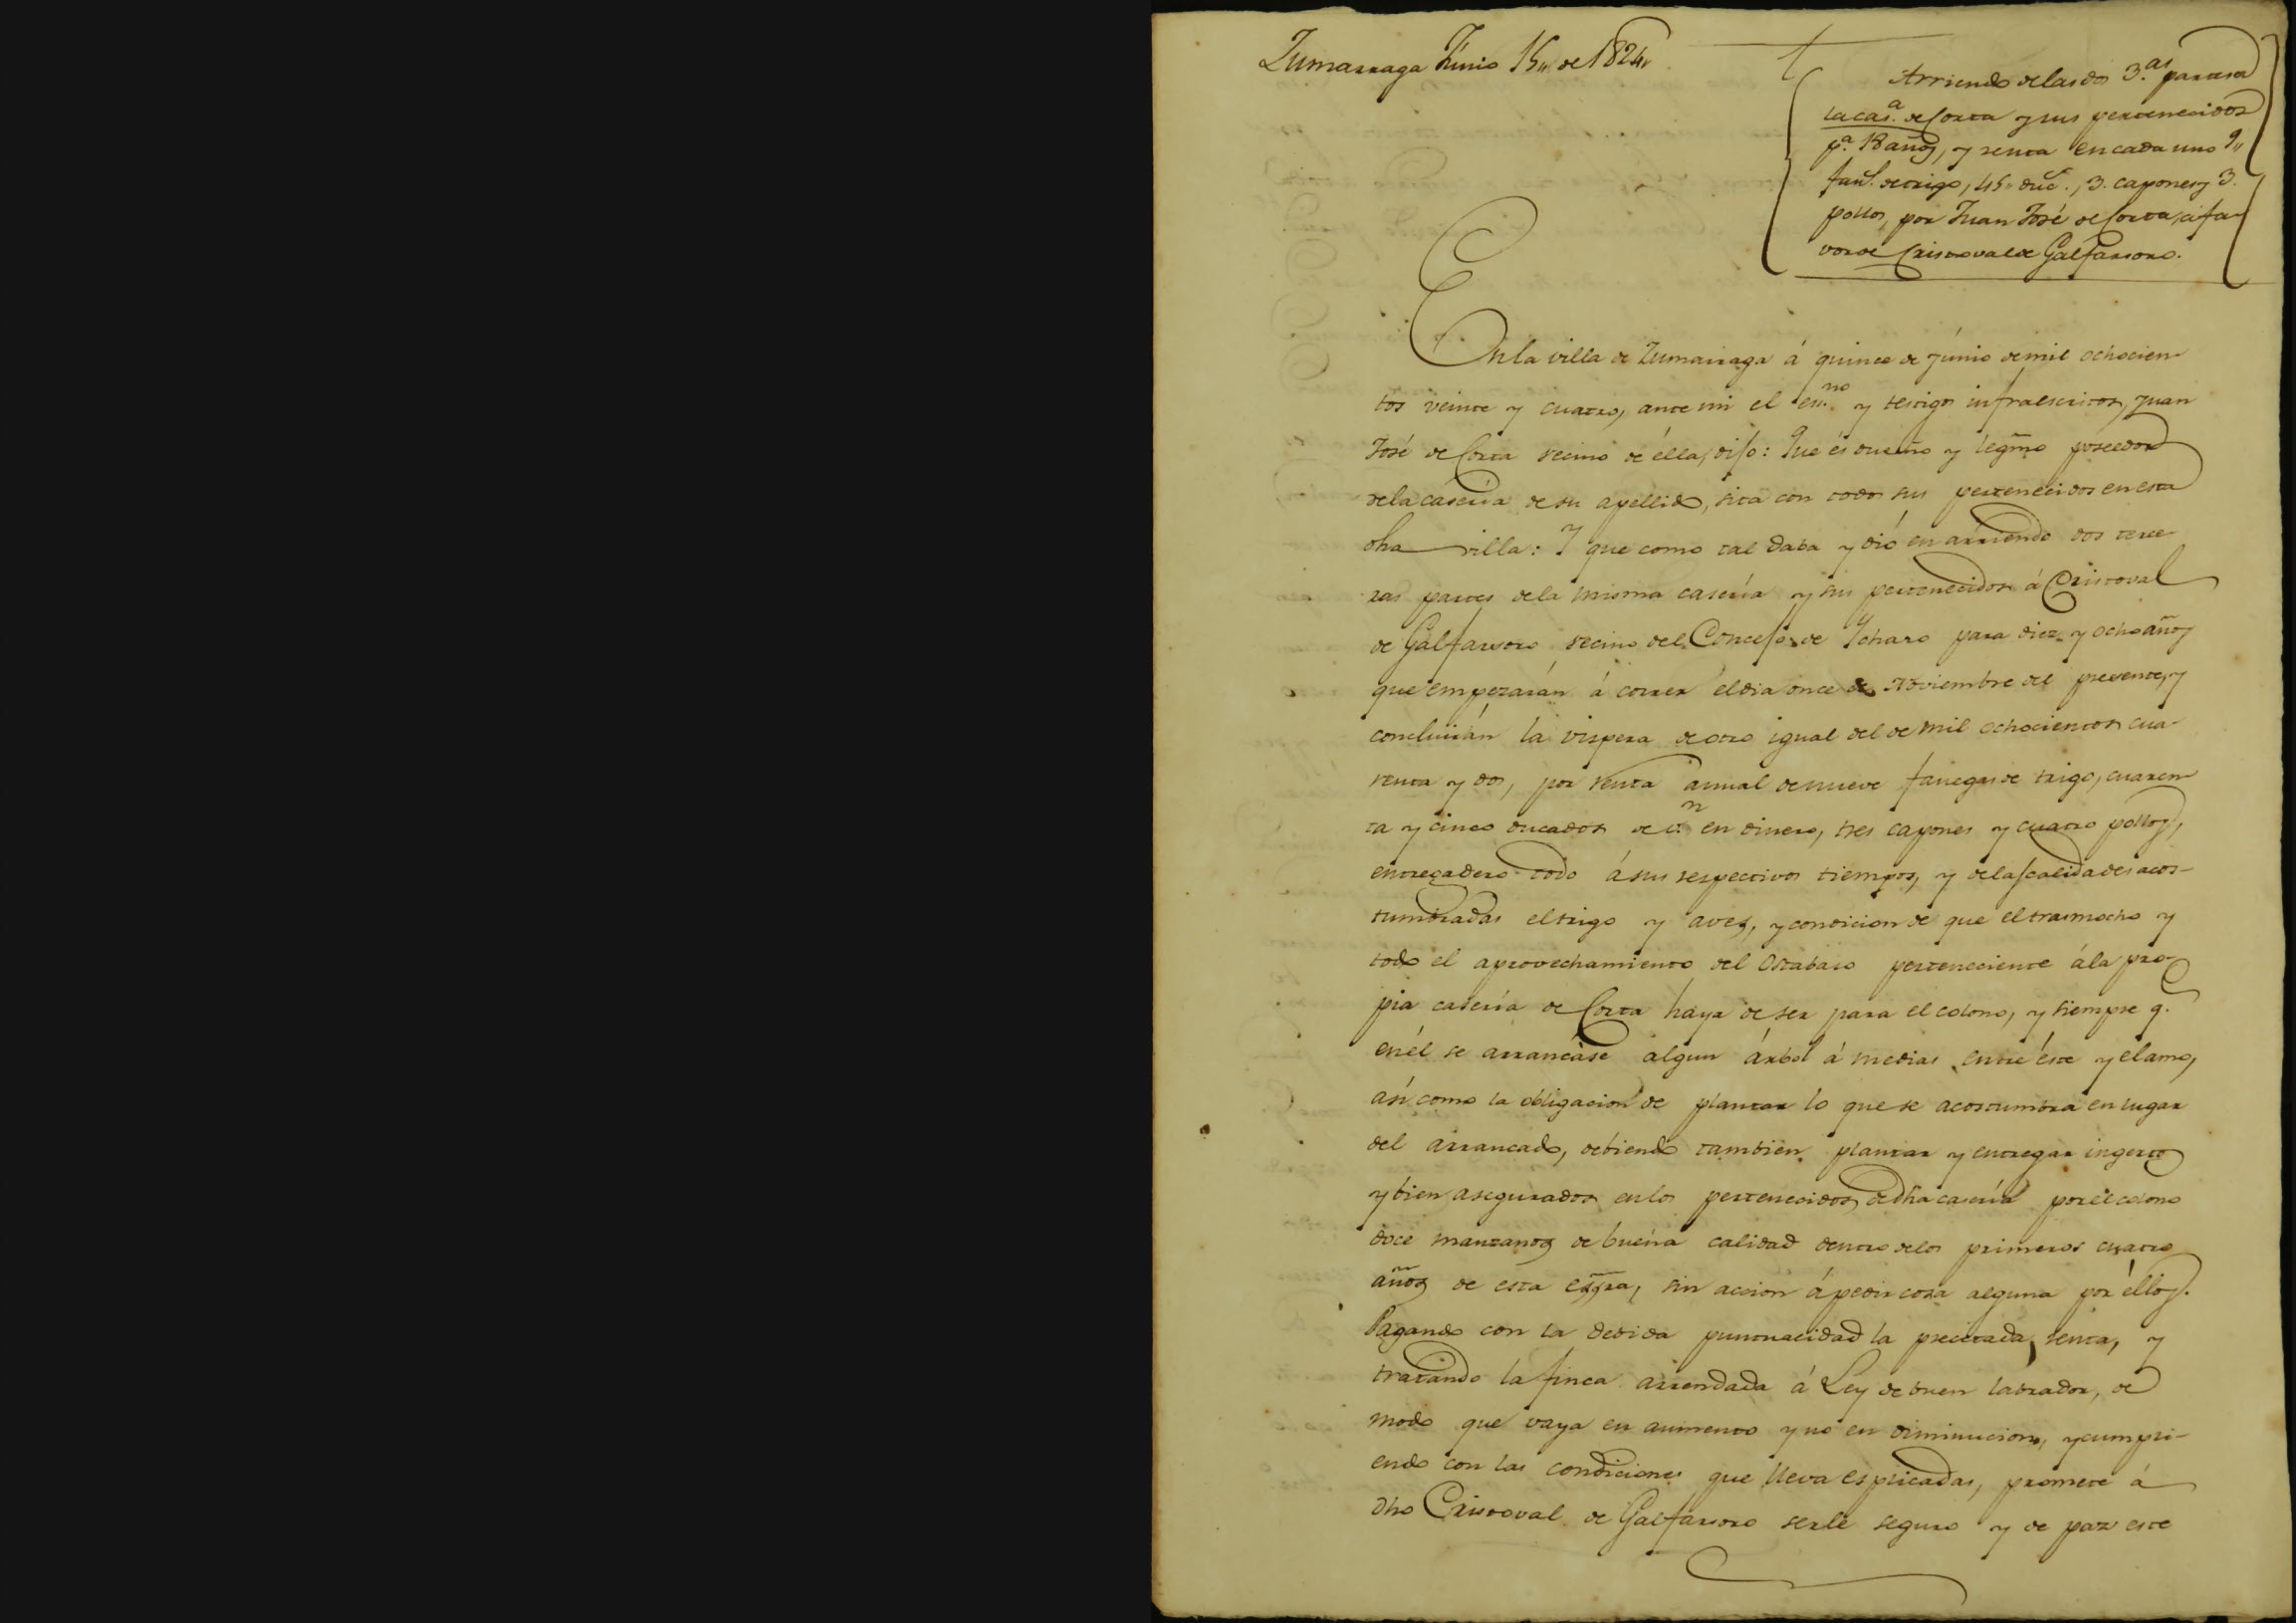 Zumarraga Június 15,, de 1824,,
Arriendo delas dos 3.as partes d
la cas.a de Corta y sus pertenecidos
p.a 18 años, y renta en cada uno 9,,
fan.s de trigo, 45,, duc.s, 3. capones y 3.
pollos, por Juan José de Corta, á fa-
vor de Cristoval de Galfarsoro.
En la villa de Zumarraga á quince de Június de mil ochocien-
tos veinte y cuatro, ante mi el es.no y testigos infraescritos, Juan
José de Corta vecino de élla, dijo: Que és dueño y legmo poseedor
dela casería de su apellido, sita con todos sus pertenecidos en esta
dha villa: Y que como tal daba y dió en arriendo dos terce-
ras partes dela misma casería y sus pertenecidos á Cristoval
de Galfarsoro vecino del Concejo de Ycharo para diez y ocho años
que empezarán á correr el dia once de Noviembre del presente, y
concluirán la vispera de otro igual del de mil ochocientos cua-
renta y dos, por renta anual de nueve fanegas de trigo, cuaren-
ta y cinco ducados de v.n en dinero, tres capones y cuatro pollos,
entregadero todo á sus respectivos tiempos, y delas calidades acos-
tumbradas el trigo y aves, y condicion de que el trasmocho y
todo el aprovechamiento del Ostabaso perteneciente á la pro-
pia casería de Corta haya de ser para el colono, y siempre q.
en él se arrancáse algun árbol á medias entre éste y el amo,
así como la obligacion de plantar lo que se acostumbra en lugar
del arrancado, debiendo tambien plantar y entregar ingertos
y bien asegurados en los pertenecidos de dha casería por el colono
doce manzanos de buena calidad dentro delos primeros cuatro
años de esta essra, sin accion á pedir cosa alguna por éllos.
Pagando con la debida puntualidad la precitada renta, y
tratando la finca arrendada á Ley de buen labrador, de
modo que vaya en aumento y no en diminucion, y cumpli-
endo con las condiciones que lleva esplicadas, promete á
dho Cristoval de Galfarsoro serle seguro y de paz este